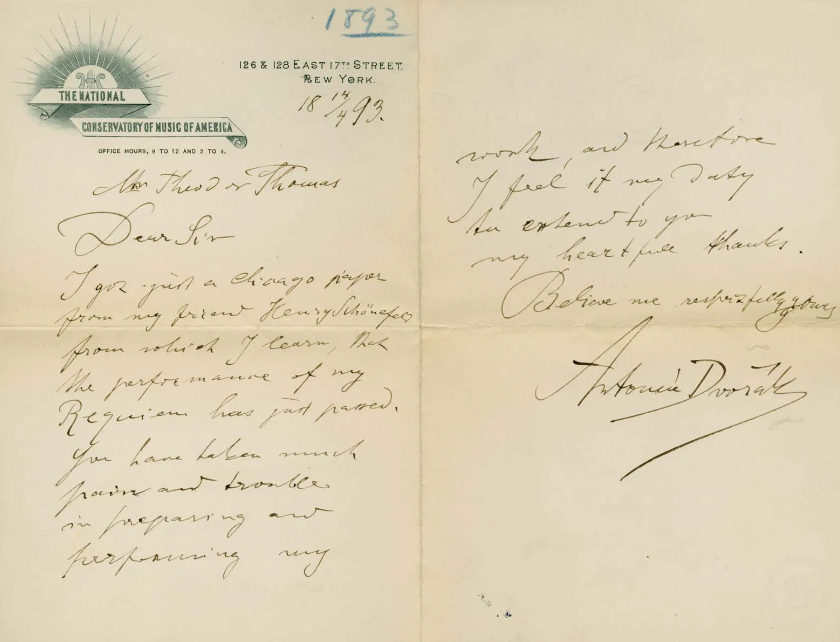 1893
THE NATIONAL
CONSERVATORY OF MUSIC OF AMERICA
OFFICE HOURS, 9 TO 12 AND 2 TO 4.
126 & 128 EAST 17TH STREET,
NEW YORK.
18 14/4 93.
Mr Theodor Thomas
Dear Sir
I got just a Chicago paper
from my friend Henry Schönefeld
from which I learn, that
the performance of my
Requiem has just passed.
You have taken much
pain and trouble
in preparing and
performing my
work, and therefore
I feel it my Duty
to extend to you
my heartfull thanks.
Believe me respectfully yours
Antonín Dvořák